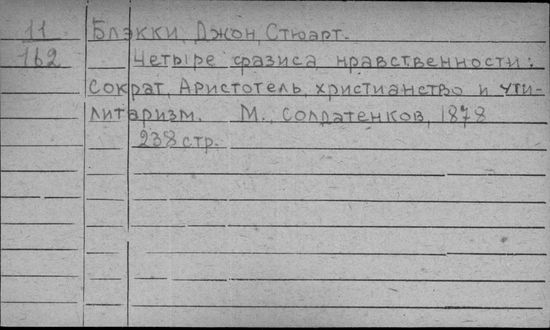 11
162
Блэкки, Джон, Стюарт.
Четыре фазиса нравственности:
Сократ, Аристотель, христианство и ути-
литаризм. М., Солдатенков, 1878
238 стр.